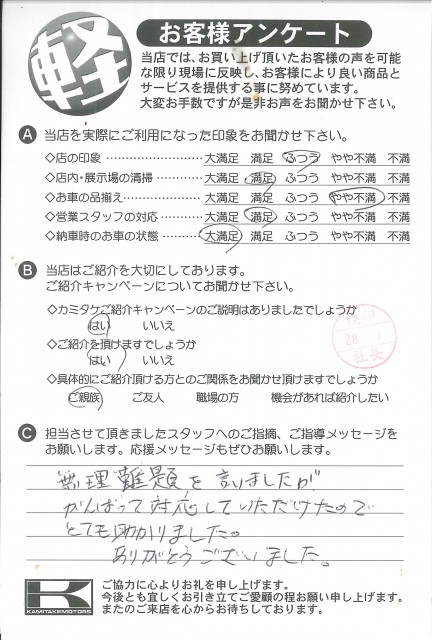 軽
お客様アンケート
当店では、お買い上げ頂いたお客様の声を可能
な限り現場に反映し、お客様により良い商品と
サービスを提供する事に努めています。
大変お手数ですが是非お声をお聞かせ下さい。
A 当店を実際にご利用になった印象をお聞かせ下さい。
◇店の印象 ………………… 大満足 満足 ふつう やや不満 不満
◇店内・展示場の清掃 ………… 大満足 満足 ふつう やや不満 不満
◇お車の品揃え ……………… 大満足 満足 ふつう やや不満 不満
◇営業スタッフの対応 ………… 大満足 満足 ふつう やや不満 不満
◇納車時のお車の状態 ………… 大満足 満足 ふつう やや不満 不満
B 当店はご紹介を大切にしております。
ご紹介キャンペーンについてお聞かせ下さい。
◇カミタケご紹介キャンペーンのご説明はありましたでしょうか
はい いいえ
◇ご紹介を頂けますでしょうか
はい いいえ
◇具体的にご紹介頂ける方とのご関係をお聞かせ頂けますでしょうか
ご親族 ご友人 職場の方 機会があれば紹介したい
社長
C 担当させて頂きましたスタッフへのご指摘、ご指導メッセージを
お願いします。応援メッセージもぜひお願いします。
無理難題を言いましたが
がんばって対応していただけたので
とても助かりました。
ありがとうございました。
K
KAMITAKEMOTORS
ご協力に心よりお礼を申し上げます。
今後とも宜しくお引き立てご愛顧の程お願い申し上げます。
またのご来店を心からお待ちしております。